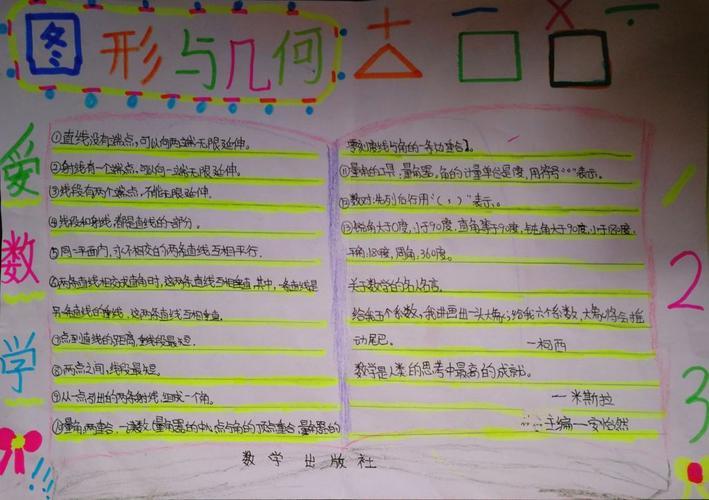 图形与几何
+ − × ÷
爱数学
①直线没有端点，可以向两端无限延伸。
②射线有一个端点，可以向一端无限延伸。
③线段有两个端点，不能无限延伸。
④线段和射线，都是直线的一部分。
⑤同一平面内，永不相交的两条直线互相平行。
⑥两条直线相交成直角时，这两条直线互相垂直，其中，一条直线是
另条直线的垂线，这两条直线互相垂直。
⑦点到直线的距离，垂线段最短。
⑧两点之间，线段最短。
⑨从一点引出的两条射线，组成一个角。
⑩量角，两重合，一读数（量角器的中心点与角的顶点重合，量角器的
零刻度线与角的一条边重合）。
⑪量角的工具：量角器，角的计量单位是度，用符号"°"表示。
⑫数对：先列后行用"（，）"表示。
⑬锐角大于0度，小于90度，直角等于90度，钝角大于90度，小于180度，
平角，180度，周角，360度。
关于数学的名人名言。
给我五个系数，我讲画出一头大象；给我六个系数，大象将会摇
动尾巴。
—柯西
数学是人类的思考中最高的成就。
—米斯拉
主编—安怡然
数学出版社
1
2
3
!!!